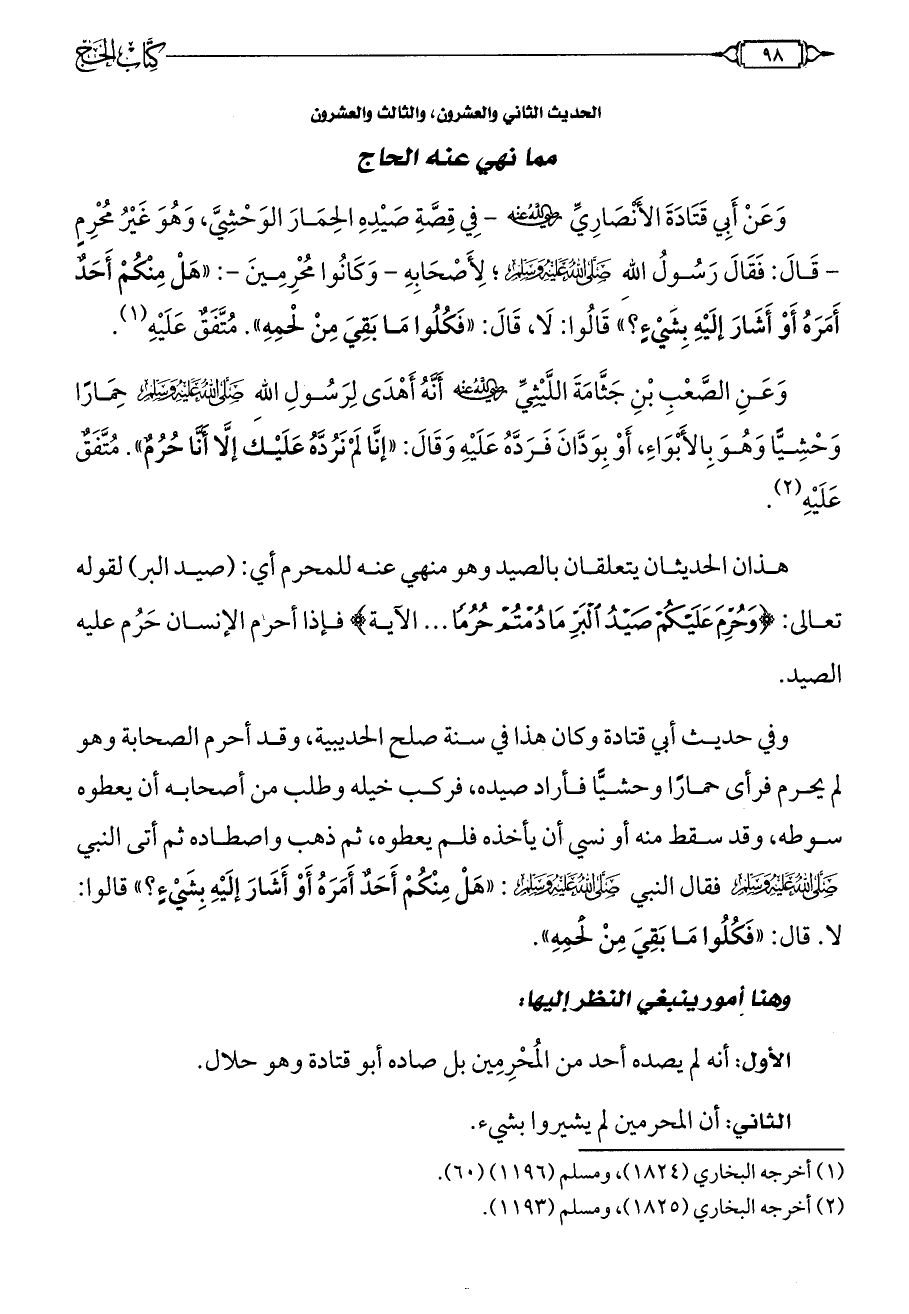 ٩٨
كِتَابُ الحَجِّ
الحديث الثاني والعشرون، والثالث والعشرون
مما نهي عنه الحاج
وَعَنْ أَبِي قَتَادَةَ الأَنْصَارِيِّ رضي الله عنه - فِي قِصَّةِ صَيْدِهِ الحِمَارَ الوَحْشِيَّ، وَهُوَ غَيْرُ مُحْرِمٍ
- قَالَ: فَقَالَ رَسُولُ اللهِ صلى الله عليه وسلم ؛ لِأَصْحَابِهِ - وَكَانُوا مُحْرِمِينَ -: «هَلْ مِنْكُمْ أَحَدٌ
أَمَرَهُ أَوْ أَشَارَ إِلَيْهِ بِشَيْءٍ؟» قَالُوا: لَا، قَالَ: «فَكُلُوا مَا بَقِيَ مِنْ لَحْمِهِ». مُتَّفَقٌ عَلَيْهِ(١).
وَعَنِ الصَّعْبِ بْنِ جَثَّامَةَ اللَّيْثِيِّ رضي الله عنه أَنَّهُ أَهْدَى لِرَسُولِ اللهِ صلى الله عليه وسلم حِمَارًا
وَحْشِيًّا وَهُوَ بِالأَبْوَاءِ، أَوْ بِوَدَّانَ فَرَدَّهُ عَلَيْهِ وَقَالَ: «إِنَّا لَمْ نَرُدَّهُ عَلَيْكَ إِلَّا أَنَّا حُرُمٌ». مُتَّفَقٌ
عَلَيْهِ(٢).
هذان الحديثان يتعلقان بالصيد وهو منهي عنه للمحرم أي: (صيد البر) لقوله
تعالى: ﴿وَحُرِّمَ عَلَيْكُمْ صَيْدُ ٱلْبَرِّ مَا دُمْتُمْ حُرُمًا... الآية﴾ فإذا أحرم الإنسان حَرُم عليه
الصيد.
وفي حديث أبي قتادة وكان هذا في سنة صلح الحديبية، وقد أحرم الصحابة وهو
لم يحرم فرأى حمارًا وحشيًّا فأراد صيده، فركب خيله وطلب من أصحابه أن يعطوه
سوطه، وقد سقط منه أو نسي أن يأخذه فلم يعطوه، ثم ذهب واصطاده ثم أتى النبي
صلى الله عليه وسلم فقال النبي صلى الله عليه وسلم : «هَلْ مِنْكُمْ أَحَدٌ أَمَرَهُ أَوْ أَشَارَ إِلَيْهِ بِشَيْءٍ؟» قالوا:
لا. قال: «فَكُلُوا مَا بَقِيَ مِنْ لَحْمِهِ».
وهنا أمور ينبغي النظر إليها:
الأول: أنه لم يصده أحد من الُمحْرِمين بل صاده أبو قتادة وهو حلال.
الثاني: أن المحرمين لم يشيروا بشيء.
(١) أخرجه البخاري (١٨٢٤)، ومسلم (١١٩٦) (٦٠).
(٢) أخرجه البخاري (١٨٢٥)، ومسلم (١١٩٣).